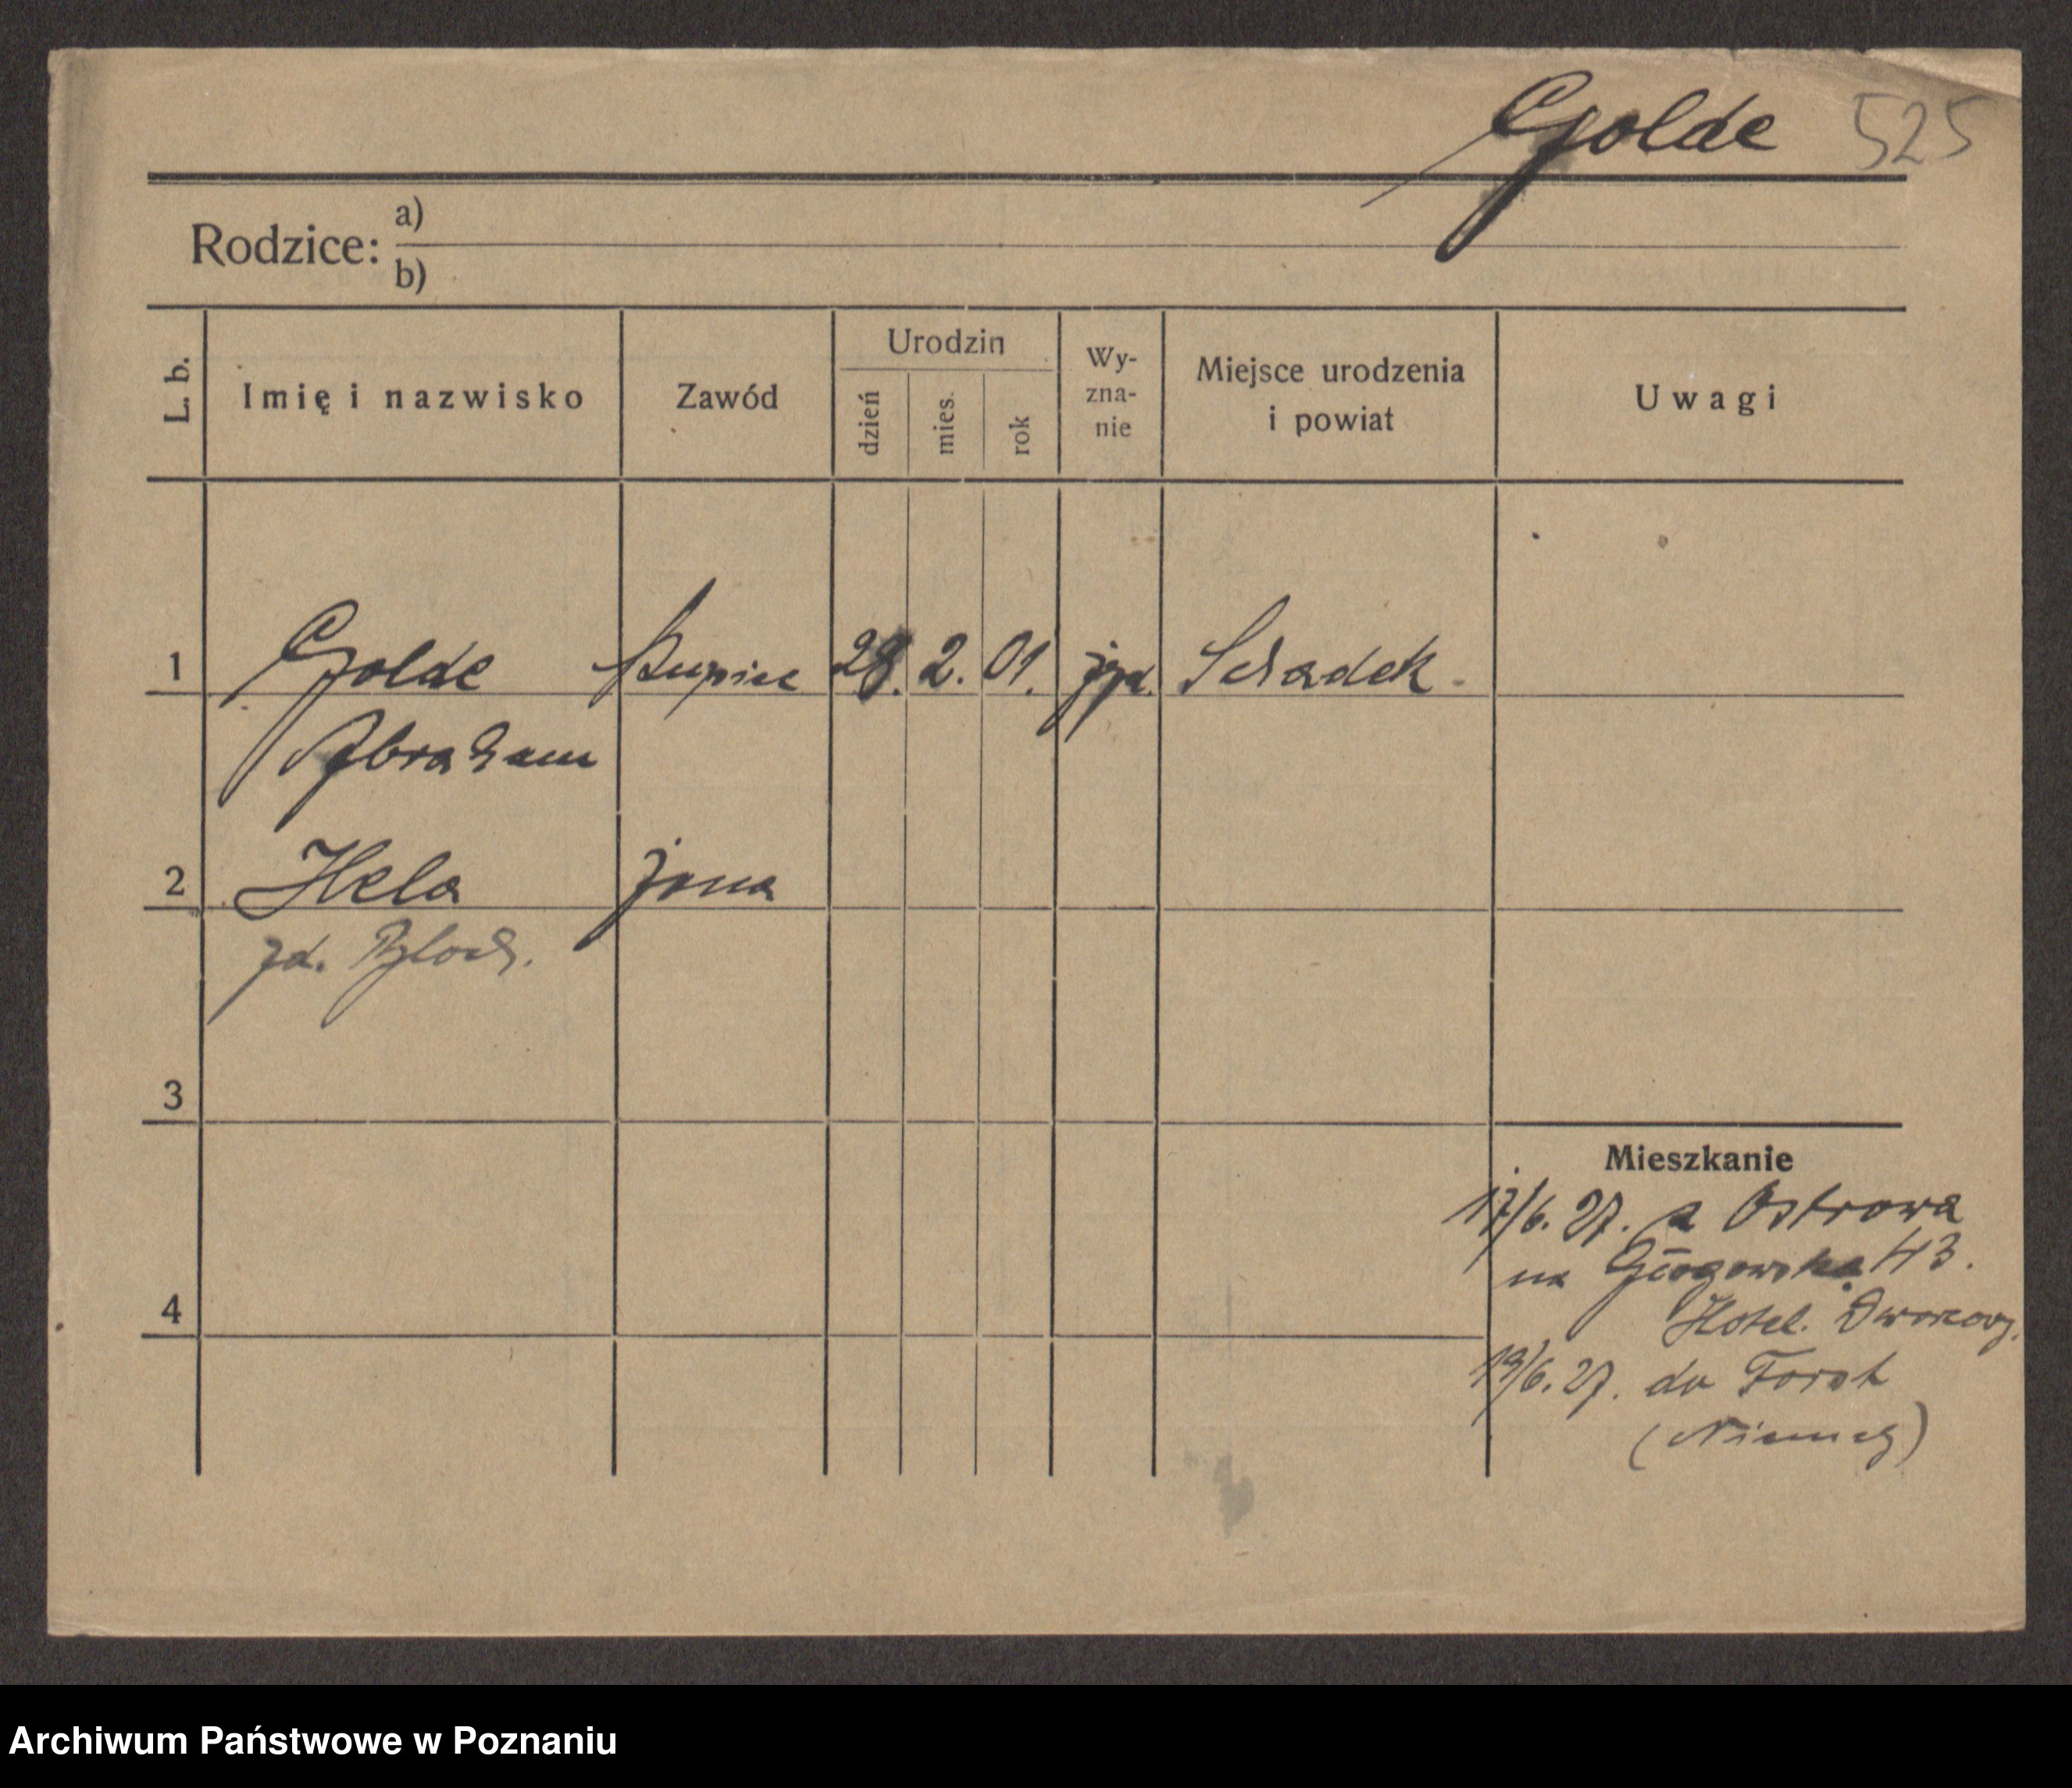 Golde 525
Rodzice: a)
b)
L. b.
Imię i nazwisko
Zawód
Urodzin
dzień
mies.
rok
Wy-
zna-
nie
Miejsce urodzenia
i powiat
Uwagi
1 Golde Kupiec 28. 2. 01. Sieradek
Abraham
2 Hela żona
3
Mieszkanie
17/6. 27. z Ostrowa
na Głogowska 43.
Hotel. Dworcowy.
4
19/6. 27. do Forst
(Niemcy)
Archiwum Państwowe w Poznaniu